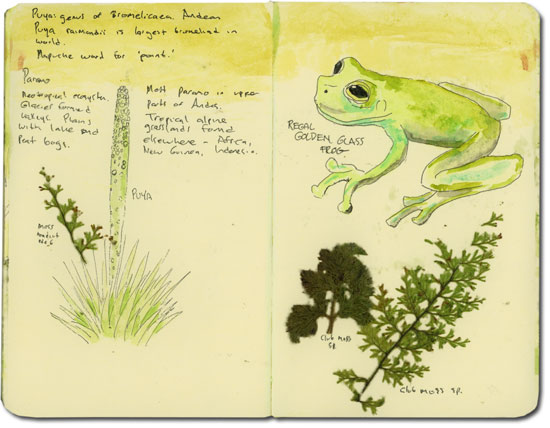 Puya: genus of Bromeliacea. Andean
Puya raimondii is largest bromeliad in
world.
Mapuche word for 'point.'
Paramo
Neotropical ecosystem.
Glacier formed
valleys, Plains
with lake and
Peat bogs.
Most Paramo in upper
parts of Andes.
Tropical alpine
grasslands found
elsewhere - Africa,
New Guinea, Indonesia.
PUYA
Moss
No. 6
REGAL
GOLDEN GLASS
FROG
Club Moss
SP.
Club Moss SP.